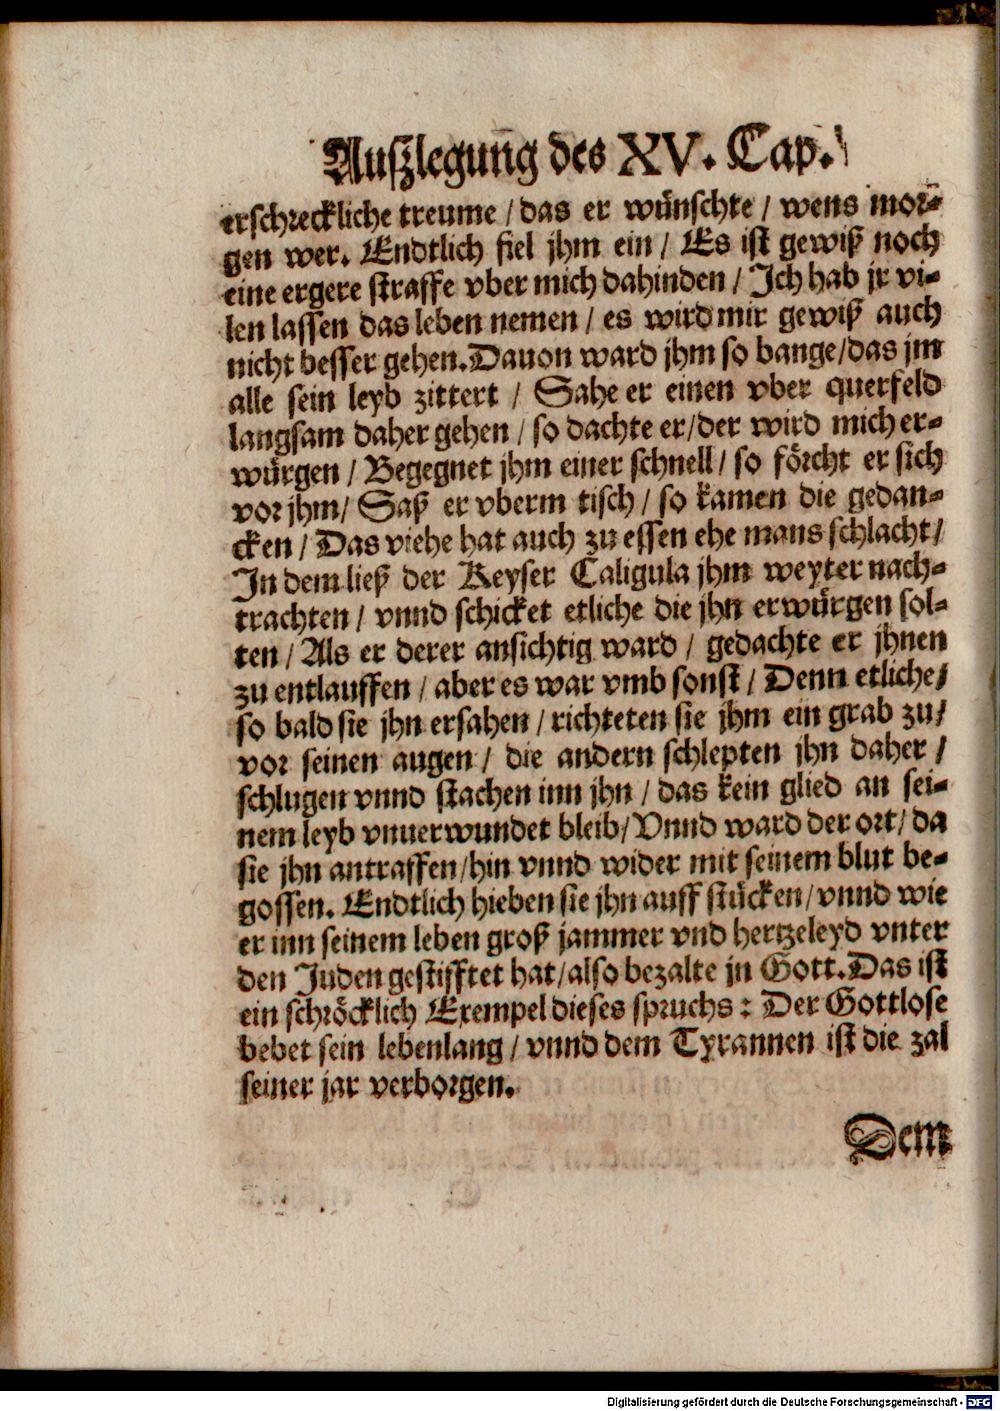 Auszlegung des XV. Cap.
erschreckliche treume / das er wünschte / wens mor-
gen wer. Endtlich fiel jhm ein / Es ist gewiß noch
eine ergere straffe vber mich dahinden / Ich hab jr vi-
len lassen das leben nemen / es wird mir gewiß auch
nicht besser gehen. Dauon ward jhm so bange / das jm
alle sein leyb zittert / Sahe er einen vber querfeld
langsam daher gehen / so dachte er / der wird mich er-
würgen / Begegnet jhm einer schnell / so förcht er sich
vor jhm / Saß er vberm tisch / so kamen die gedan-
cken / Das viehe hat auch zu essen ehe mans schlacht /
In dem ließ der Keyser Caligula jhm weyter nach-
trachten / vnnd schicket etliche die jhn erwürgen sol-
ten / Als er derer ansichtig ward / gedachte er jhnen
zu entlauffen / aber es war vmb sonst / Denn etliche /
so bald sie jhn ersahen / richteten sie jhm ein grab zu /
vor seinen augen / die andern schlepten jhn daher /
schlugen vnnd stachen inn jhn / das kein glied an sei-
nem leyb vnuerwundet bleib / Vnnd ward der ort / da
sie jhn antraffen / hin vnnd wider mit seinem blut be-
gossen. Endtlich hieben sie jhn auff stücken / vnnd wie
er inn seinem leben groß jammer vnd hertzeleyd vnter
den Juden gestifftet hat / also bezalte jn Gott. Das ist
ein schröcklich Exempel dieses spruchs : Der Gottlose
bebet sein lebenlang / vnnd dem Tyrannen ist die zal
seiner jar verborgen.
Dem
Digitalisierung gefördert durch die Deutsche Forschungsgemeinschaft - DFG